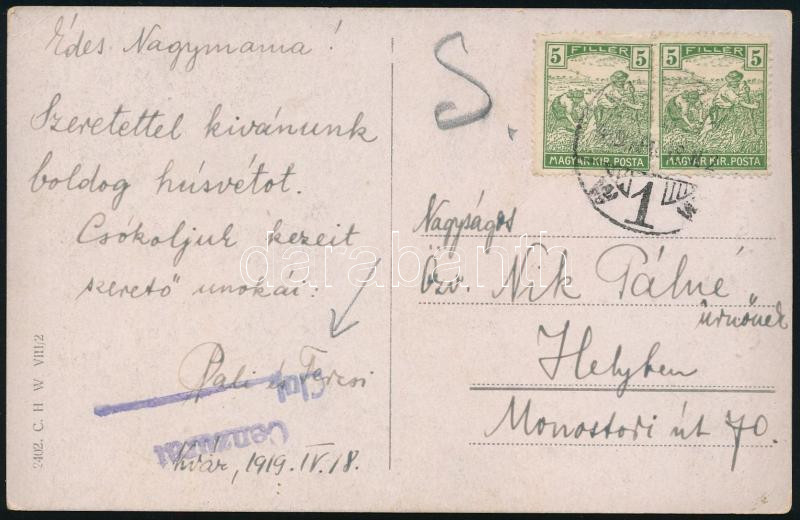 Édes Nagymama!
Szeretettel kivánunk
boldog húsvétot.
Csókoljuk kezeit
szerető unokái:
Pali és Fercsi
Kvár, 1919. IV. 18.
Cenzurat
Cluj
2402. C. H. W. VIII/2
S.
5 FILLÉR 5 FILLÉR
MAGYAR KIR. POSTA MAGYAR KIR. POSTA
1
Nagyságos
özv. Nik Pálné
úrnőnek
Helyben
Monostori út 70.
darabanth